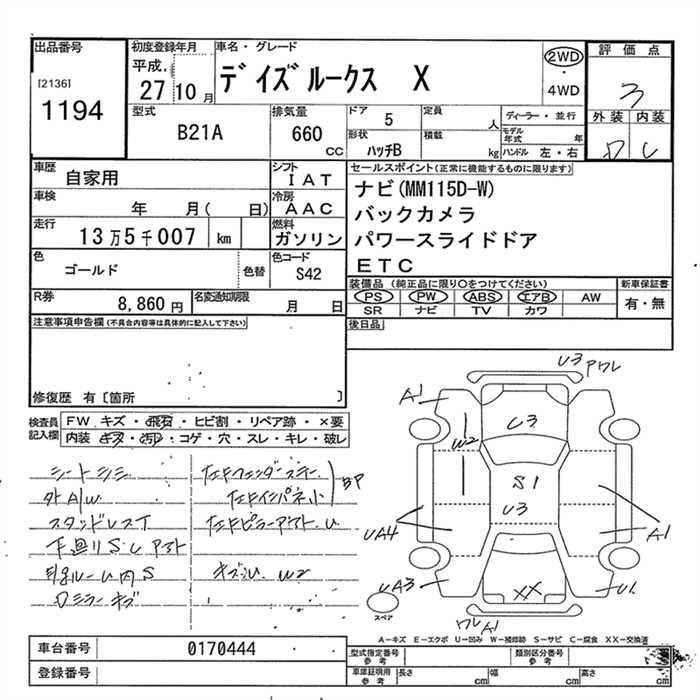 出品番号
[2136]
1194
初度登録年月
平成.
27 10月
車名・グレード
デイズルークス X
2WD
・
4WD
評価点
3
外装 内装
D C
型式
B21A
排気量
660
CC
ドア
5
定員
人
形状
ハッチB
積載
kg
ディーラー・並行
モデル年式
年
ハンドル 左・右
車歴
自家用
シフト
IAT
車検
年 月( 日)
冷房
AAC
走行
13万5千007 km
燃料
ガソリン
色
ゴールド
色替
色コード
S42
R券
8,860円
名変通知期限
月 日
セールスポイント(正常に機能するものに限ります)
ナビ(MM115D-W)
バックカメラ
パワースライドドア
ETC
装備品 (純正品に限り○をつけてください)
PS PW ABS エアB AW
SR ナビ TV カワ
新車保証書
有・無
後日品
注意事項申告欄(不具合内容等は具体的に記入して下さい)
修復歴 有〔箇所 〕
検査員
記入欄
FW キズ・飛石・ヒビ割・リペア跡・×要
内装 キズ・汚レ・コゲ・穴・スレ・キレ・破レ
シートシミ
外A/W
スタッドレスT
下廻りS.C アト
キズU. W2
ロミラーキズ
BP
U3 アワレ
A1
U3
W2
S1
U3
UA4
A1
UA3
XX
U1
ワレA1
スペア
A―キズ E―エクボ U―凹み W―補修跡 S―サビ C―腐食 XX―交換済
車台番号
0170444
登録番号
型式指定番号
参考
類別区分番号
参考
車庫証明用
参考
長さ cm 幅 cm 高さ cm